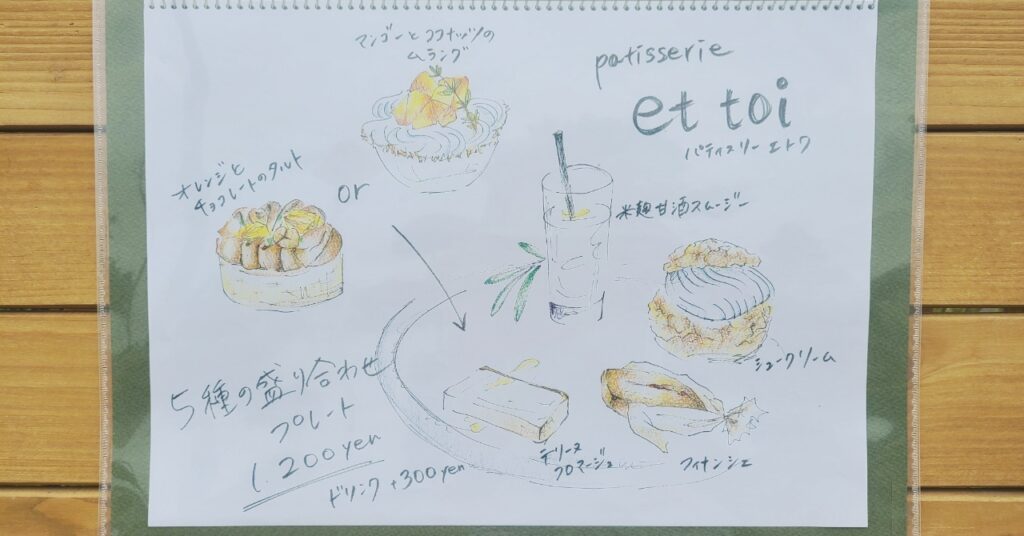 マンゴーとココナッツの
ムラング
patisserie
et toi
パティスリー エトワ
オレンジと
チョコレートのタルト
or
米麹甘酒スムージー
シュークリーム
5種の盛り合わせ
プレート
1,200yen
ドリンク +300yen
テリーヌ
フロマージュ
フィナンシェ